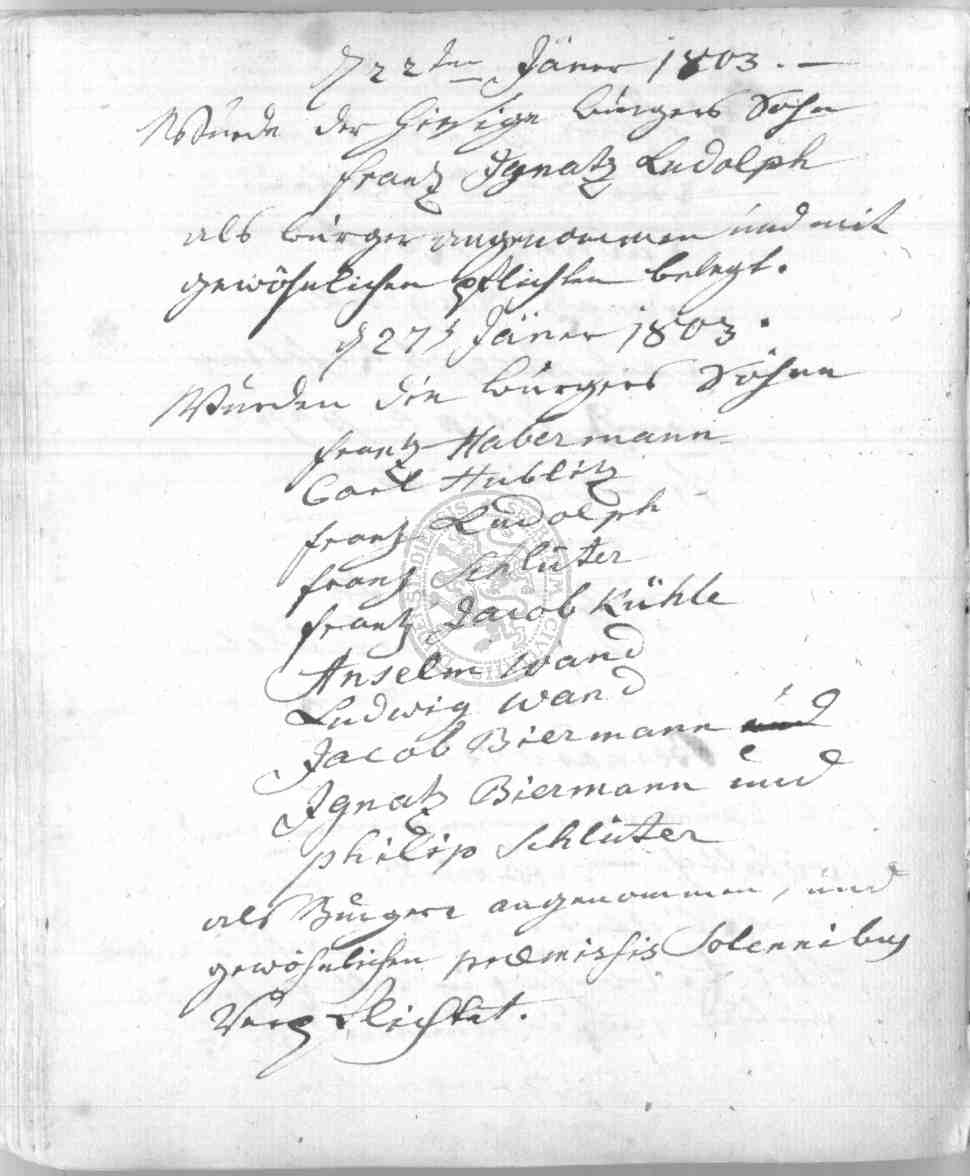 d 22ten Jäner 1803. —
Wurde der hiesige bürgers Sohn
Frantz Ignatz Ludolph
als bürger angenommen und mit
gewöhnlichen pflichten belegt.
d 27t Jäner 1803.
Wurden die bürgers Söhne
Frantz Habermann
Carl Hublitz
Frantz Ludolph
Frantz Schlüter
Frantz Jacob Kühle
Anselm Wand
Ludwig Wand
Jacob Biermann und
Ignatz Biermann und
Philip Schlüter
als Bürgere angenommen, und
gewöhnlichen præmissis Solennibus
Verpflichtet.